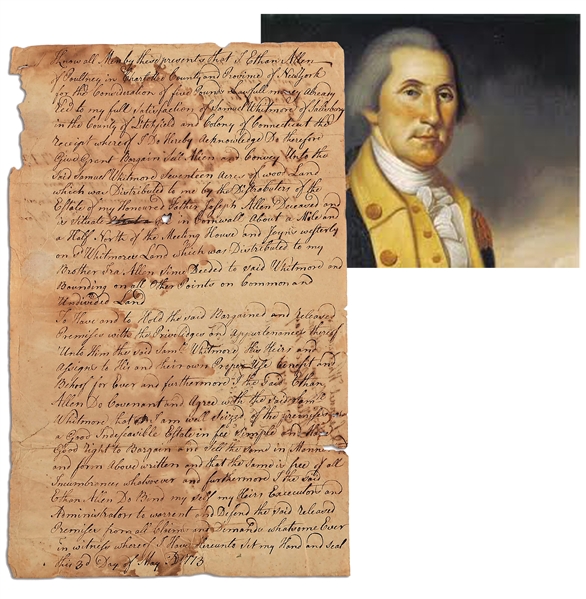 Know all Men by these presents that I Ethan Allen
of Poultney in Charlotte County and Province of New York
for the Consideration of five Pounds Lawfull money Already
P'd to my full Satisfaction of Samuel Whitmore of Salisbury
in the County of Litchfield and Colony of Connecticut the
receipt whereof I Do Hereby Acknowledge Do therefore
Give Grant Bargain Sell Alien and Convey Unto the
Said Samuel Whitmore Seventeen Acres of wood Land
which was Distributed to me by the Distributors of the
Estate of my Honored Father Joseph Allen Deceased and
is Situate in Cornwall About a Mile and
a Half North of the Meeting House and Joyns westerly
on s'd Whitmores Land which was Distributed to my
Brother Ira Allen Sinse Deeded to said Whitmore and
Bounding on all other Points on Common and
Undivided Land
To Have and to Hold the said Bargained and Released
Premises with the Priveledges and Appurtenances thereof
Unto Him the said Saml Whitmore His Heirs and
Assigns to His and their own Proper Use benefit and
Behoof for Ever and furthermore I the Said Ethan
Allen Do Covenant and Agree with the said Sam
Whitmore that I am well Seized of the premises as
a Good Indefeasible Estate in fee Simple and Have
Good Right to Bargain and Sell the Same in Manner
and form Above written and that the Same is free of all
Incumbrances whatsoever and furthermore I the said
Ethan Allen Do Bind my Self my Heirs Executors and
Administrators to warrent and Defend the said Released
Premises from all Claims and Demands whatsome Ever
In witness whereof I Have Hereunto Set my Hand and Seal
this 3d Day of May 1773